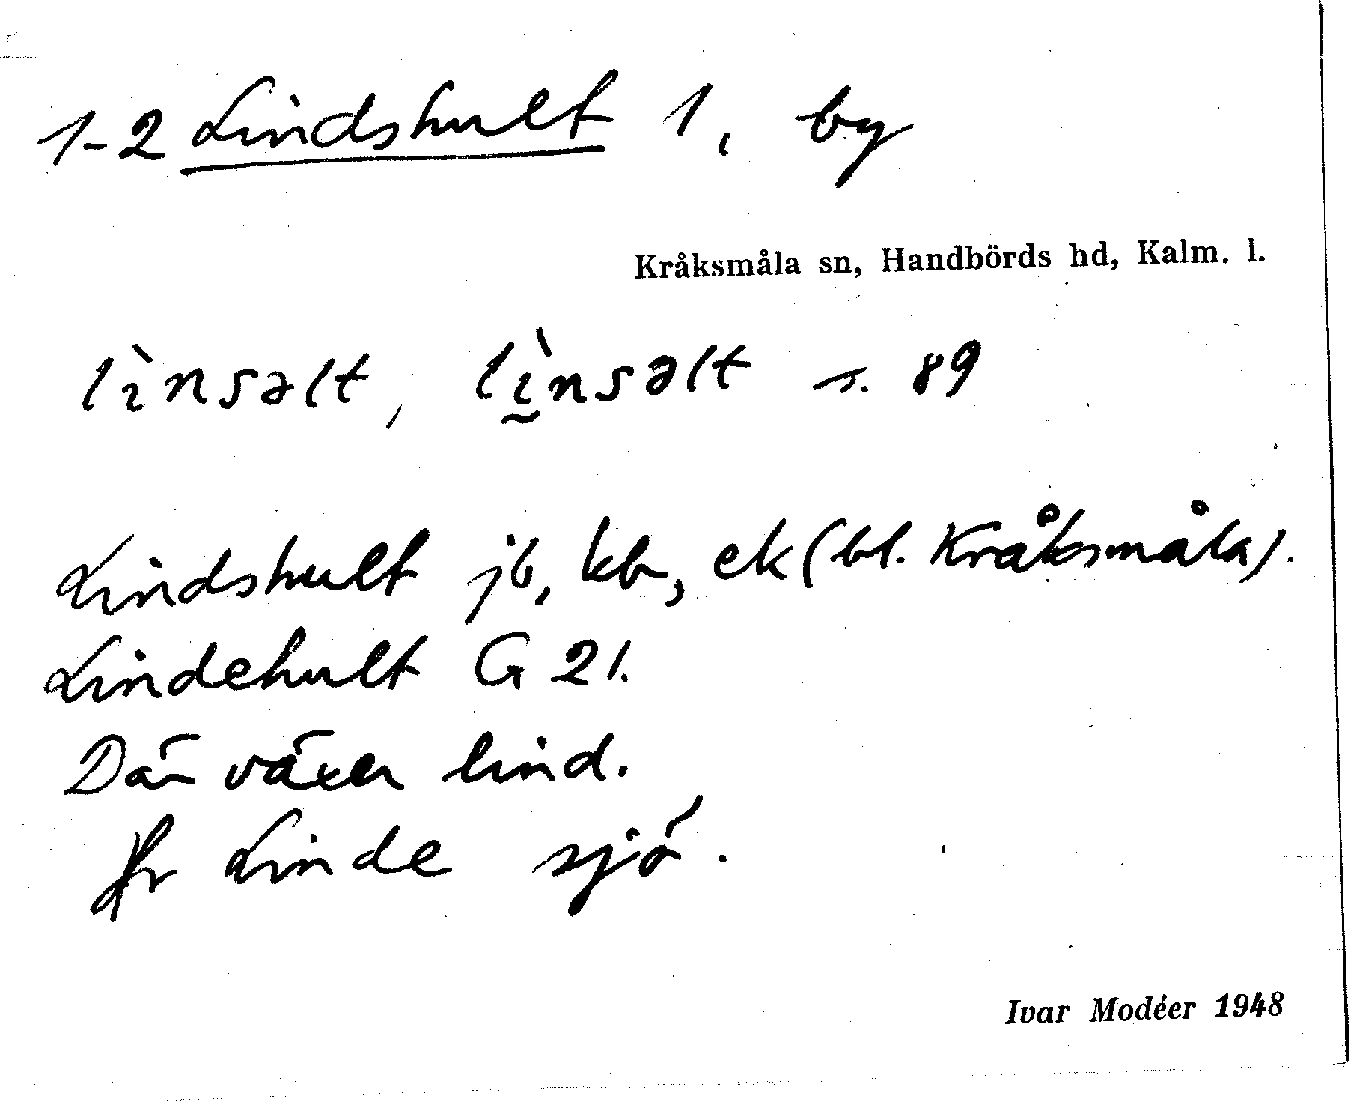 1-2 Lindshult 1, by
Kråksmåla sn, Handbörds hd, Kalm. l.
lìnsəlt, lḭ̀nsəlt s. 89
Lindshult jb, kb, ek (bl. Kråksmåla).
Lindehult G 21.
Där växer lind.
Jfr Linde sjö.
Ivar Modéer 1948